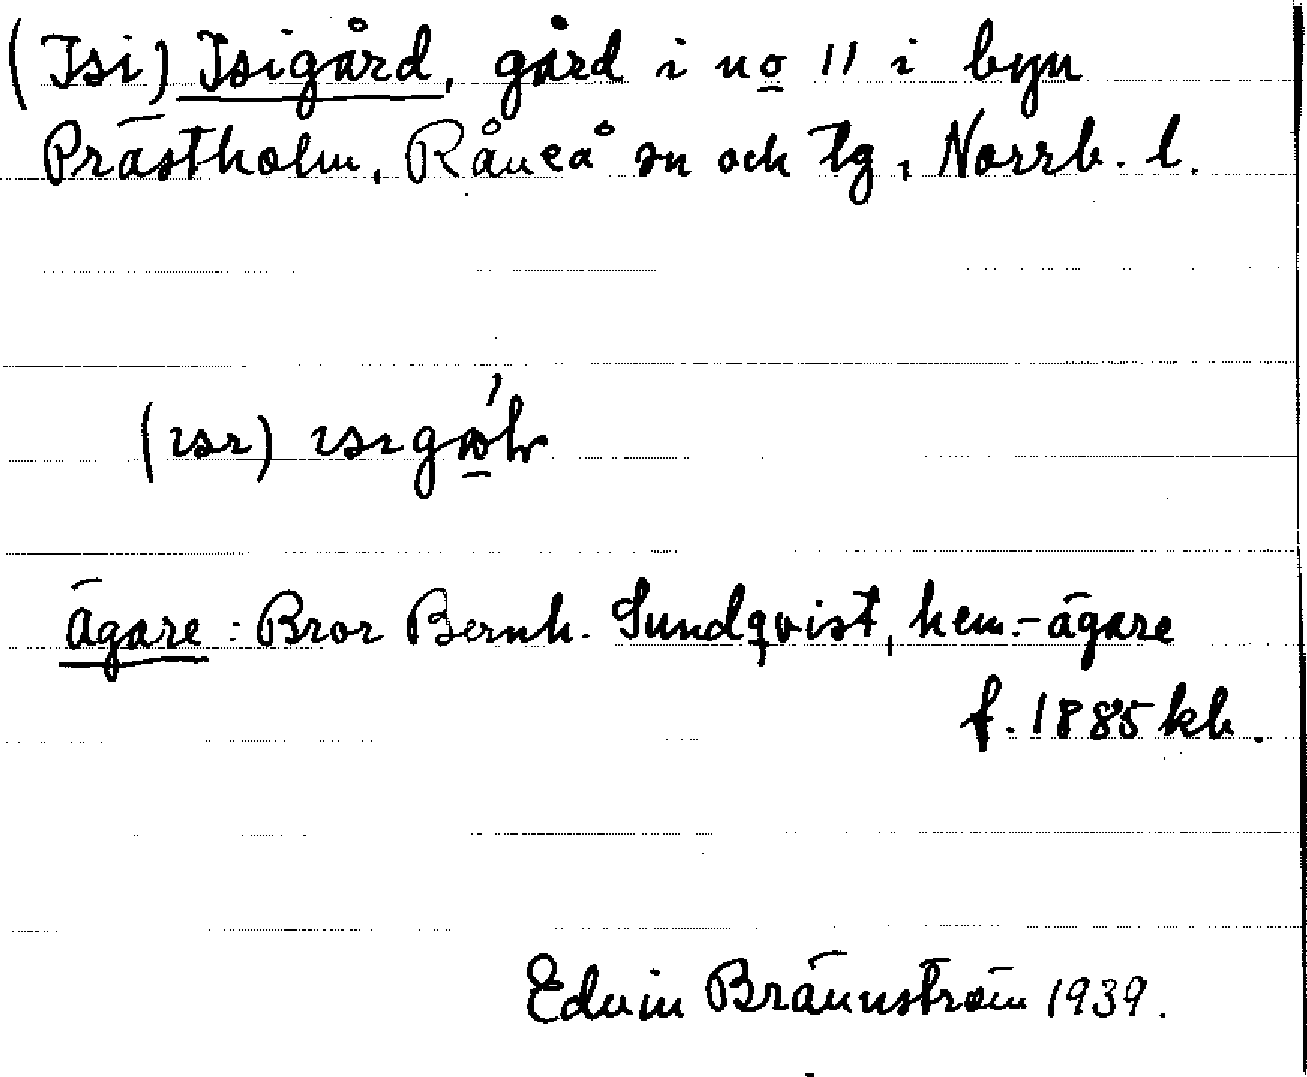 (Isi) Isigård, gård i no 11 i byn
Prästholm, Råneå sn och tg, Norrb. l.
(ısı)
Ägare: Bror Bernh. Sundqvist, hem.-ägare
f. 1885 kb.
Edvin Brännström 1939.